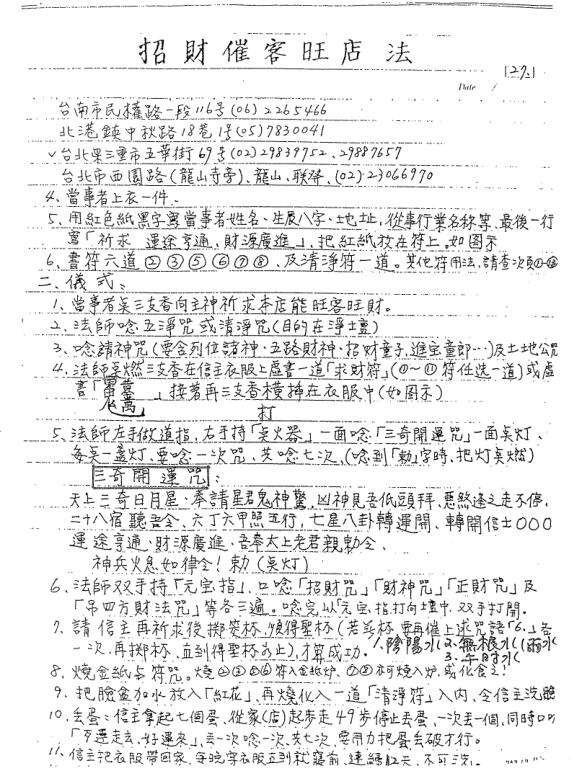 招財催客旺店法
Date
台南市民權路一段116号(06)2265466
北港鎮中秋路18巷1号(05)7830041
台北県三重市五華街69号(02)29839752、29887657
台北市西園路(龍山寺旁)、龍山、聯發、(02)23066970
4、當事者上衣一件、
5、用紅色紙黑字寫當事者姓名、生辰八字、土地址,從事行業名称等,最後一行
寫「祈求 運途亨通、財源廣進」,把紅紙放在符上。如图示
6、書符六道②③⑤⑥⑦⑧、及清淨符一道。其他符用法,請看次頁
二、儀式:
1、當事者点三支香向主神祈求本店能旺客旺財。
2、法師唸五淨咒或清淨咒(目的在淨土壇)
3、唸請神咒(要含列位諸神、五路財神、招財童子、進宝童郎…)及土地公咒
4、法師点燃三支香在信主衣服上虛書一道「求財符」(符任选一道)或虛
書「」接著再三支香橫掃在衣服中(如图示)
打
5、法師左手做道指,右手持「点火器」一面唸「三奇開運咒」一面点灯、
每点一盞灯,要唸一次咒,共唸七次、(唸到「勅」字時、把灯点燃)
三奇開運咒:
天上三奇日月星、奉請星君鬼神驚,凶神見吾低頭拜,惡煞逢之走不停,
二十八宿聽吾令、六丁六甲照五行,七星八卦轉運開、轉開信士○○○
運途亨通、財源廣進、吾奉太上老君親勅令、
神兵火急如律令!勅(点灯)
6、法師双手持「元宝指」、口唸「招財咒」「財神咒」「正財咒」及
「吊四方財法咒」等各三遍。唸完以「元宝」指打向土壇中,双手打開。
7、請信主再祈求後擲筊杯、須得聖杯(若無杯、要再催上述咒語「6.」各
一次、再擲杯、直到得聖杯為止),才算成功。1.陰陽水 2.無根水(雨水)
3.午時水
8、燒金紙与符咒。燒②③⑤⑥符入金紙炉,⑦⑧符可燒入炉,或化食之!
9、把臉盆加水放入「紅花」、再燒化入一道「清淨符」入內、令信主洗臉
10、丢蛋:信主拿起七個蛋、從家(店)起步走49步停止丢蛋、一次丢一個,同時口唸
「歹運走去、好運來」,丢一次唸一次,共七次,要用力把蛋丢破才行。
11、信主把衣服帶回家、每晚穿衣服直到就寢前、連續12天、不可洗。